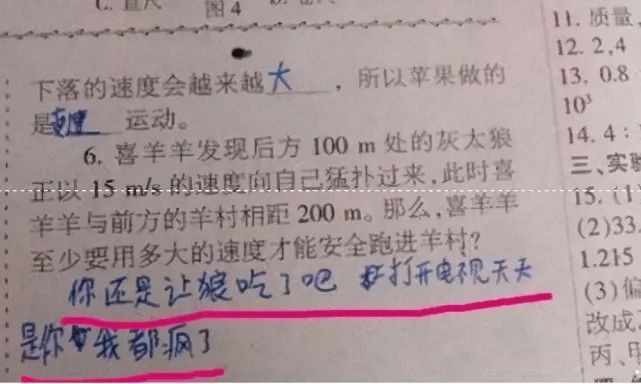 C. 直尺
图4
下落的速度会越来越大，所以苹果做的
是变速运动。
6. 喜羊羊发现后方 100 m 处的灰太狼
正以 15 m/s 的速度向自己猛扑过来，此时喜
羊羊与前方的羊村相距 200 m。那么，喜羊羊
至少要用多大的速度才能安全跑进羊村？
你还是让狼吃了吧 打开电视天天
是你 我都疯了
11. 质量
12. 2,4
13. 0.8
10³
14. 4：
三、实验
15. (1
(2)33.
1.215
(3)偏
改成
丙、甲